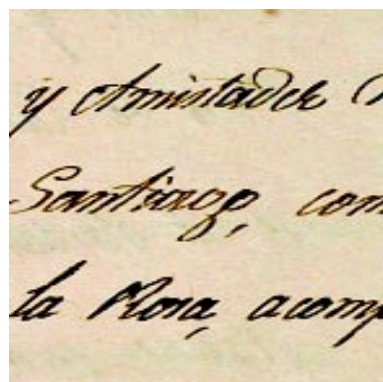 y Amistades
Santiago, com
la Rosa, acomp